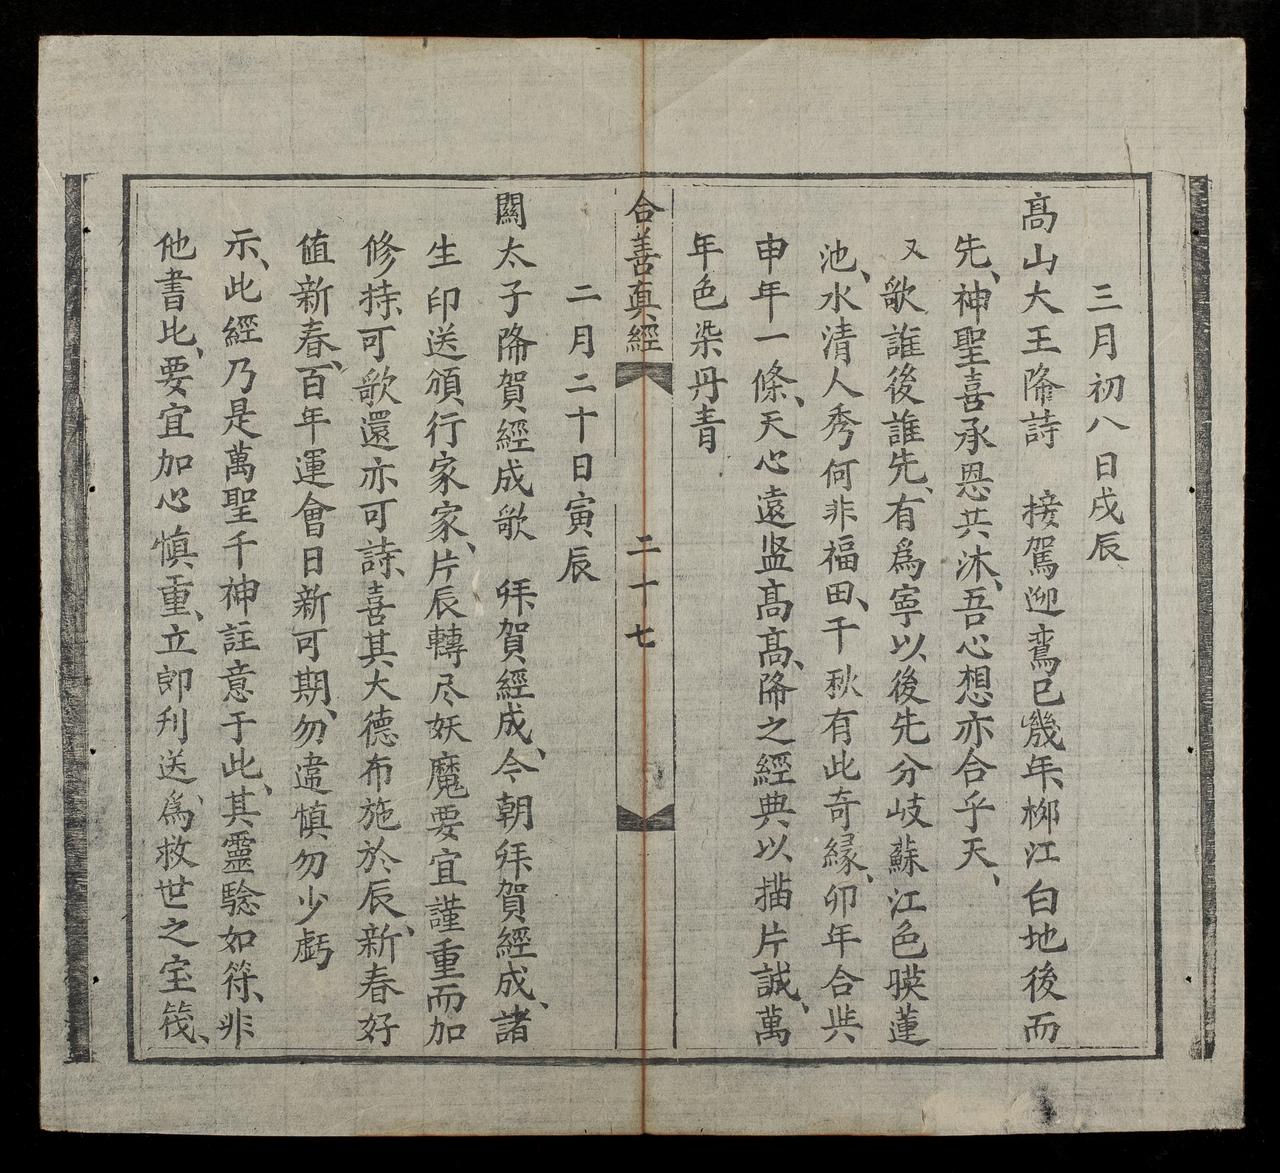 三月初八日戌辰
高山大王降詩　接駕迎鸞已幾年、柳江白地後而
先、神聖喜承恩共沐、吾心想亦合乎天、
又歌誰後誰先、有爲寧以、後先分岐蘇江色暎蓮
池、水清人秀何非福田、千秋有此奇緣、卯年合
申年一條、天心遠监高高、降之經典以描片誠、萬
年色染丹青
合善真經　二十七
二月二十日寅辰
關太子降賀經成歌　拜賀經成、今朝拜賀經成、諸
生印送頒行家家、片辰轉尽妖魔要宜謹重而加
修持、可歌還亦可詩、喜其大德布施於辰、新春好
值新春、百年運會日新可期、勿違慎勿少虧
示、此經乃是萬聖千神註意于此、其靈驗如符、非
他書比、要宜加心慎重、立即刊送、爲救世之宝筏、